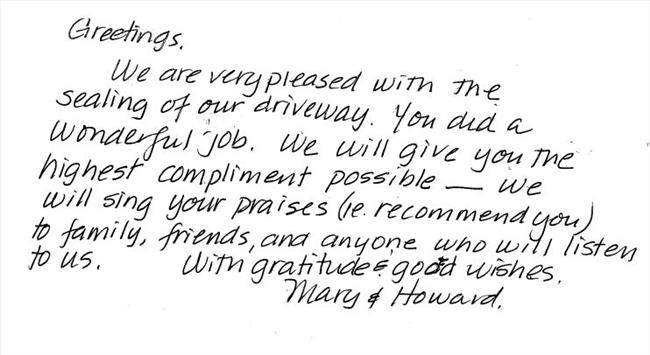 Greetings.
We are very pleased with the
sealing of our driveway. You did a
wonderful job. We will give you the
highest compliment possible — we
will sing your praises (ie. recommend you)
to family, friends, and anyone who will listen
to us. With gratitude & good wishes.
Mary & Howard.